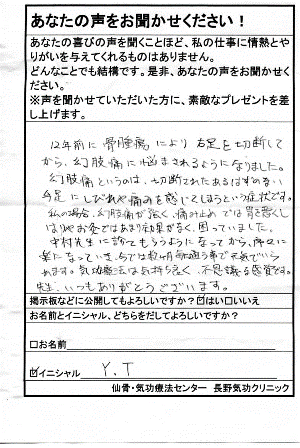 あなたの声をお聞かせください！
あなたの喜びの声を聞くことほど、私の仕事に情熱とや
りがいを与えてくれるものはありません。
どんなことでも結構です。是非、あなたの声をお聞かせく
ださい。
※声を聞かせていただいた方に、素敵なプレゼントを差
し上げます。
12年前に骨腫瘍により右足を切断して
から、幻肢痛に悩まされるようになりました。
幻肢痛というのは、切断されたあるはずのない
足にしびれや痛みを感じてしまうという症状です。
私の場合、幻肢痛が強く、痛み止めでは胃を悪くし
はりやお灸ではあまり効果がなく、困っていました。
中村先生に診てもらうようになってから、序々に
楽になっていき、今では数ヶ月に 通う事で元気でいら
れます。気功療法は気持ち良く、不思議な感覚です。
先生、いつもありがとうございます。
掲示板などに公開してもよろしいですか？☑はい□いいえ
お名前とイニシャル、どちらをだしてよろしいですか？
□お名前
☑イニシャル Y.T
仙骨・気功療法センター 長野気功クリニック